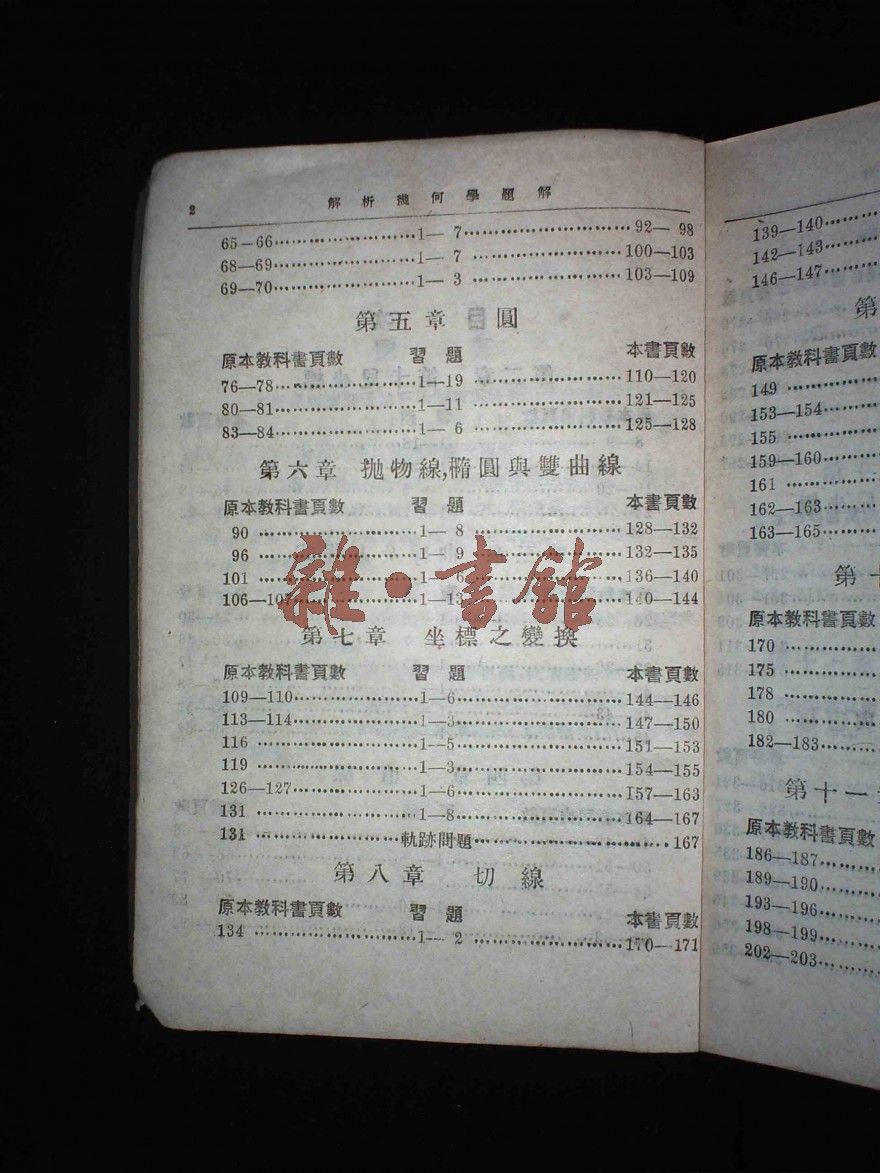 2 解析幾何學題解
65-66……………1— 7……………92— 98
68—69……………1— 7……………100—103
69—70……………1— 3……………103—109
第五章 圓
原本教科書頁數 習題 本書頁數
76—78……………1—19……………110—120
80—81……………1—11……………121—125
83—84……………1— 6……………125—128
第六章 抛物線,橢圓與雙曲線
原本教科書頁數 習題 本書頁數
90……………1— 8……………128—132
96……………1— 9……………132—135
101……………1— 6……………136—140
106—107……………1—13……………140—144
雜·書館
第七章 坐標之變換
原本教科書頁數 習題 本書頁數
109—110……………1—6……………144—146
113—114……………1—3……………147—150
116……………1—5……………151—153
119……………1—3……………154—155
126—127……………1—6……………157—163
131……………1—8……………164—167
131……………軌跡問題……………167
第八章 切線
原本教科書頁數 習題 本書頁數
134……………1— 2……………170—171
139—140………
142—143………
146—147………
第
原本教科書頁數
149………
153—154………
155………
159—160………
161………
162—163………
163—165………
第十
原本教科書頁數
170………
175………
178………
180………
182—183………
第十一
原本教科書頁數
186—187………
189—190………
193—196………
198—199………
202—203………